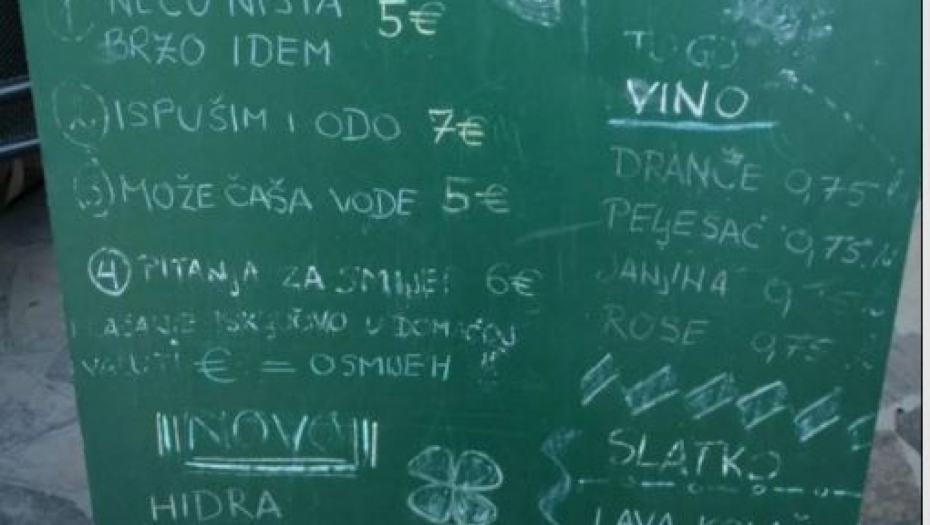 1) NEĆU NIŠTA 5€
BRZO IDEM
2.) ISPUŠIM I ODO 7€
3) MOŽE ČAŠA VODE 5€
4 PITANJA ZA SMIJEH 6€
PLAĆANJE ISKLJUČIVO U DOMAĆOJ
VALUTI € = OSMIJEH !!
NOVO
HIDRA
TO GO
VINO
DRANČE 0,75 l
PELJEŠAC 0,75
JANJINA
ROSE 0,75
SLATKO
LAVA KOLAČ